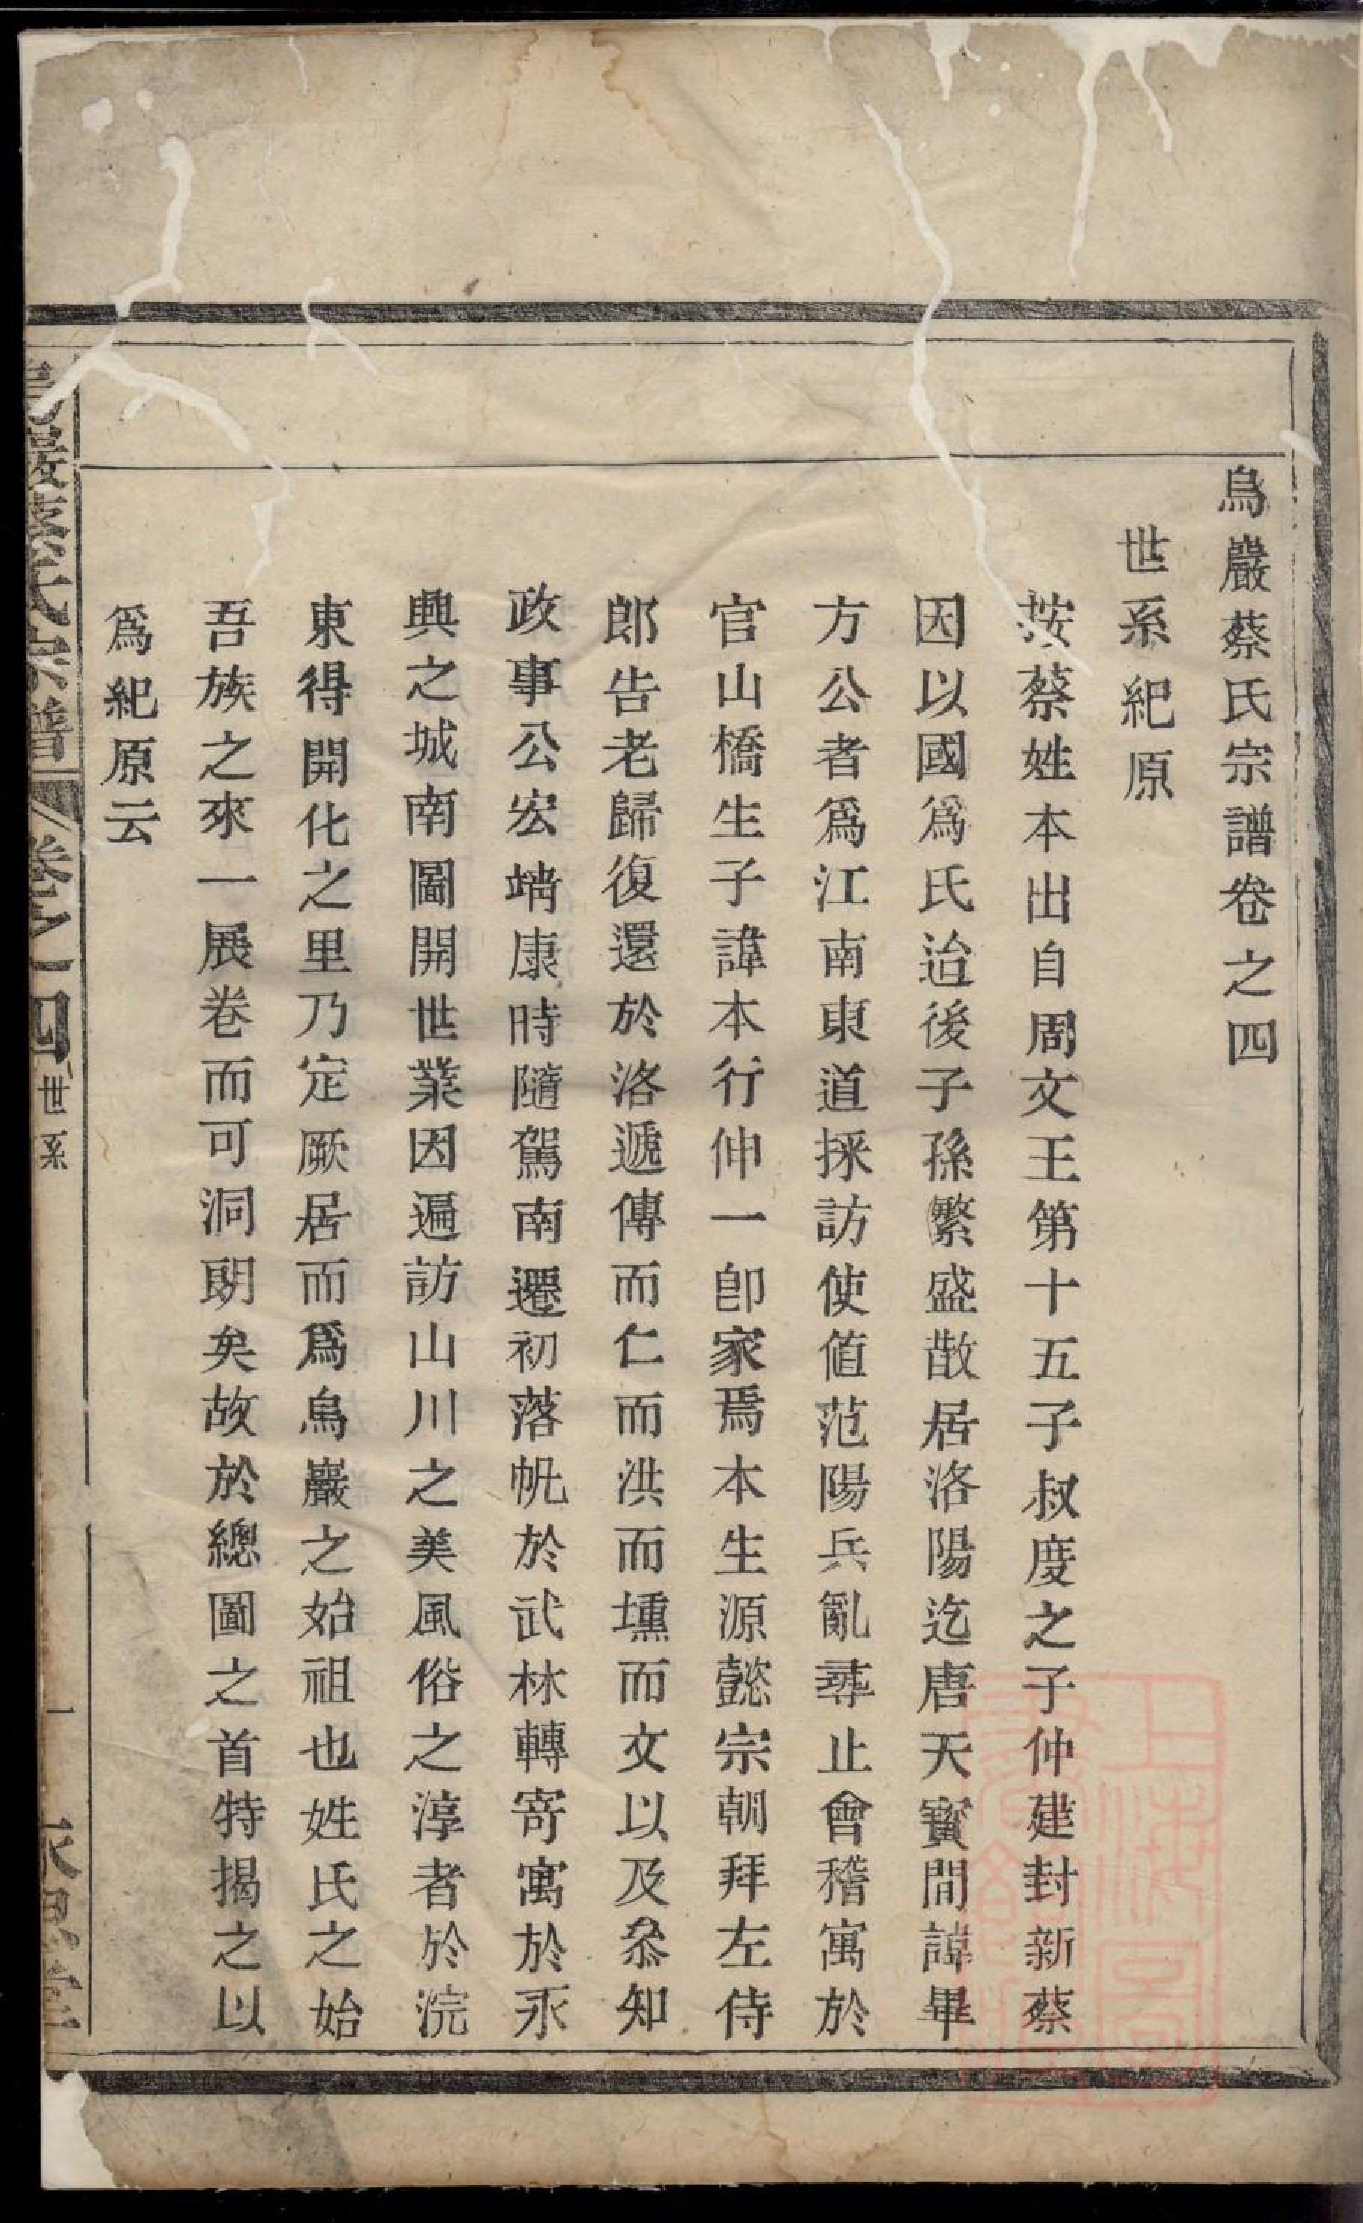 烏巖蔡氏宗譜卷之四
世系紀原
按蔡姓本出自周文王第十五子叔度之子仲建封新蔡
因以國爲氏迨後子孫繁盛散居洛陽迄唐天寳間諱畢
方公者爲江南東道採訪使値范陽兵亂尋止會稽寓於
官山橋生子諱本行仲一卽家焉本生源懿宗朝拜左侍
郎告老歸復還於洛遞傳而仁而洪而壎而文以及叅知
政事公宏靖康時隨駕南遷初落帆於武林轉寄寓於永
興之城南圖開世業因遍訪山川之美風俗之淳者於浣
東得開化之里乃定厥居而爲烏巖之始祖也姓氏之始
吾族之來一展卷而可洞朗矣故於總圖之首特揭之以
爲紀原云
烏巖蔡氏宗譜
卷之四
世系
一
永思堂
上海圖書館藏